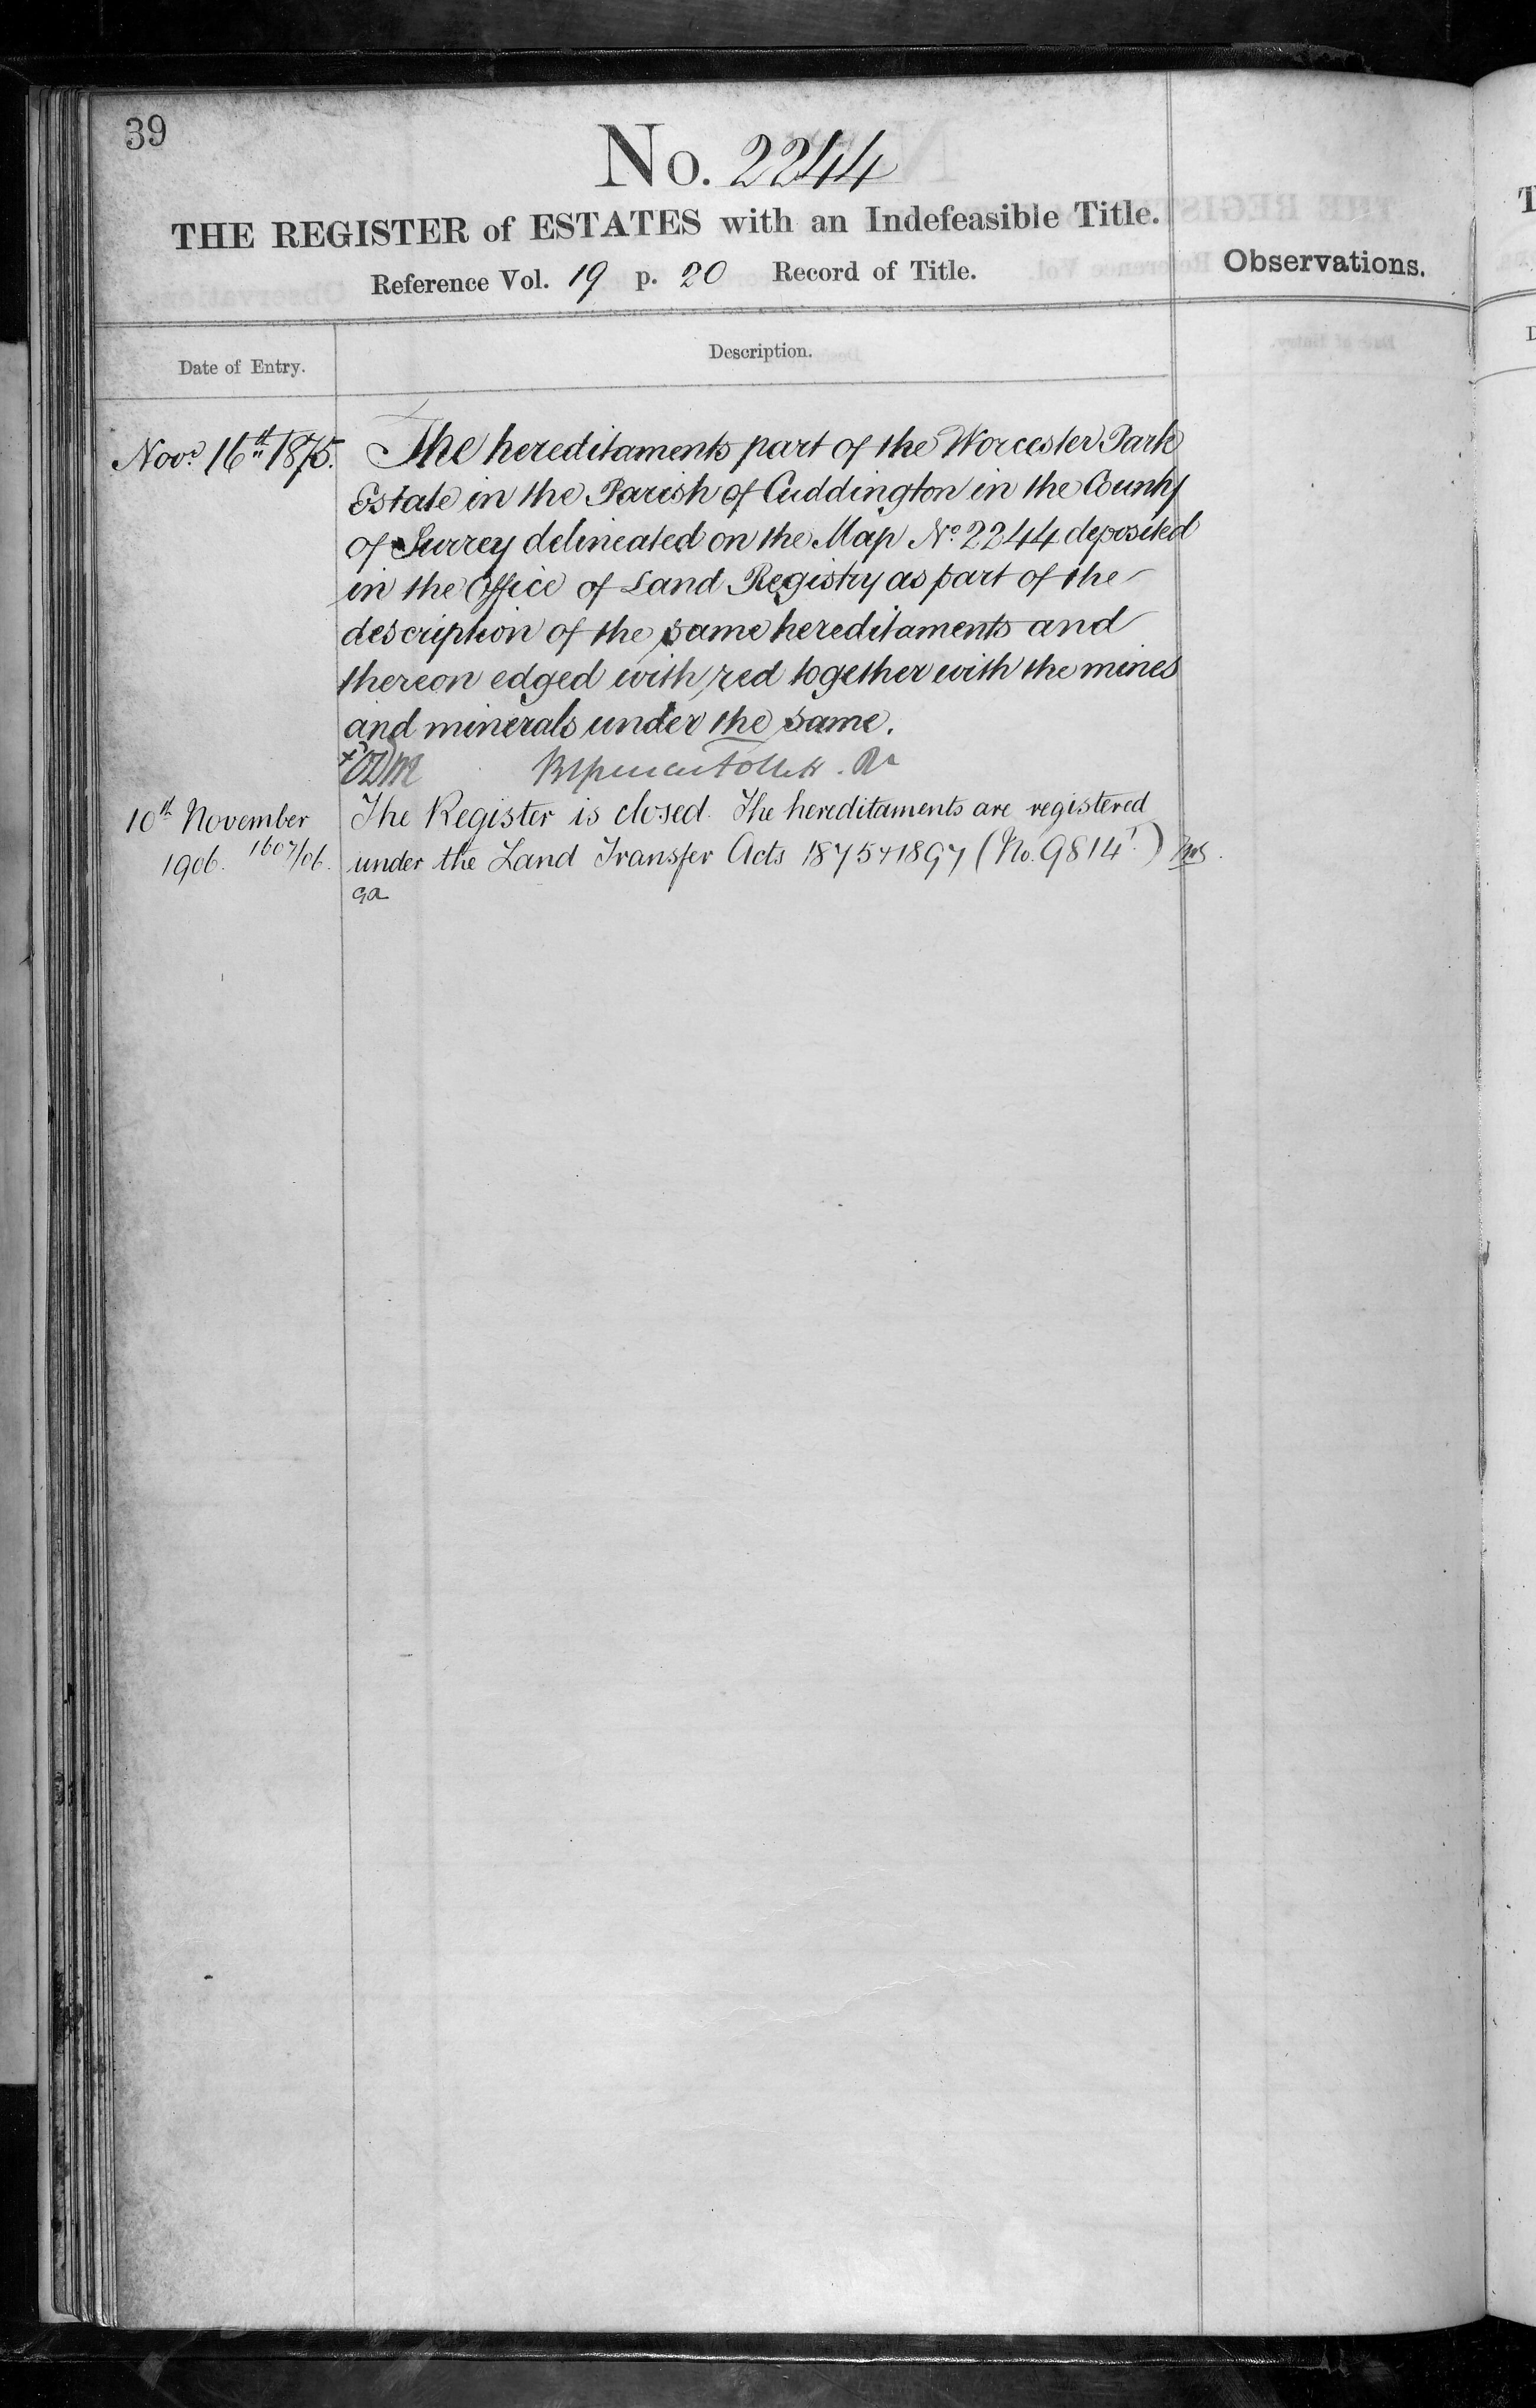 39
No. 2244
THE REGISTER of ESTATES with an Indefeasible Title.
Reference Vol. 19 p. 20 Record of Title.
Observations.
Date of Entry.
Description.
Novr. 16th 1875. The hereditaments part of the Worcester Park
Estate in the Parish of Cuddington in the County
of Surrey delineated on the Map No 2244 deposited
in the Office of Land Registry as part of the
description of the same hereditaments and
thereon edged with red together with the mines
and minerals under the same.
10th November The Register is closed. The hereditaments are registered
1906. 1607/06. under the Land Transfer Acts 1875 & 1897 (No. 9814)
ga